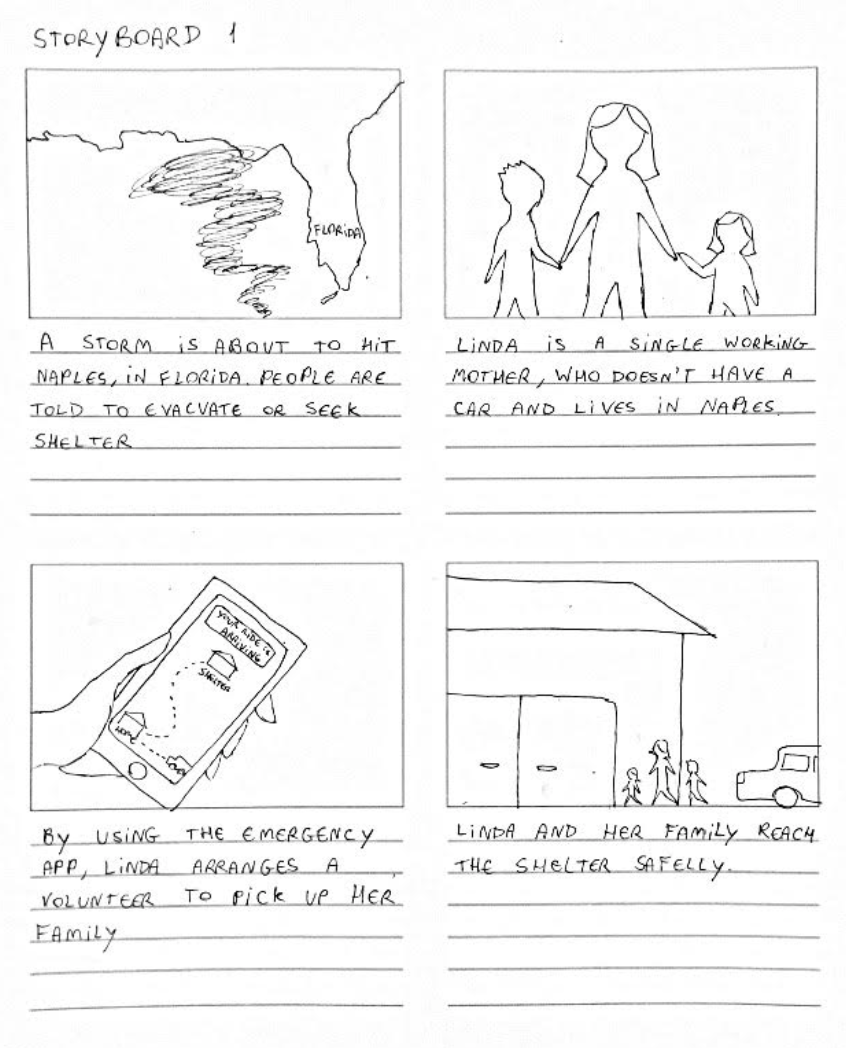 STORYBOARD 1
FLORIDA
A STORM IS ABOUT TO HIT
NAPLES, IN FLORIDA. PEOPLE ARE
TOLD TO EVACUATE OR SEEK
SHELTER
LINDA IS A SINGLE WORKING
MOTHER, WHO DOESN'T HAVE A
CAR AND LIVES IN NAPLES.
YOUR RIDE IS
ARRIVING
SHELTER
HOME
BY USING THE EMERGENCY
APP, LINDA ARRANGES A
VOLUNTEER TO PICK UP HER
FAMILY
LINDA AND HER FAMILY REACH
THE SHELTER SAFELLY.